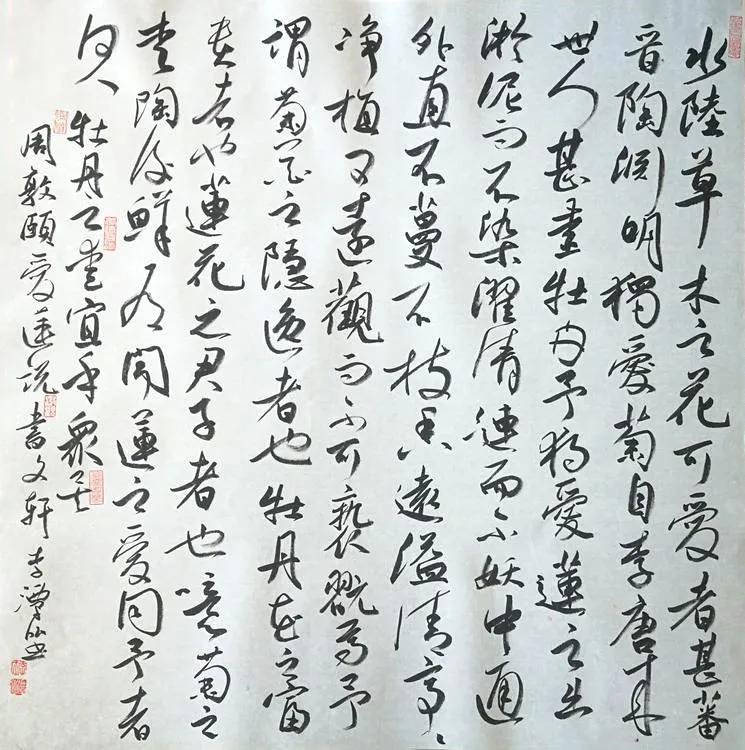 水陸草木之花可愛者甚蕃
晋陶渊明獨愛菊自李唐来
世人甚愛牡丹予独愛蓮之出
淤泥而不染濯清漣而不妖中通
外直不蔓不枝香遠溢清亭〻
净植可遠觀而不可褻翫焉予
謂菊花之隱逸者也牡丹花之富
貴者也蓮花之君子者也噫菊之
愛陶後鮮有聞蓮之愛同予者
何人牡丹之愛宜乎眾矣
周敦頤愛蓮説書文軒李潭